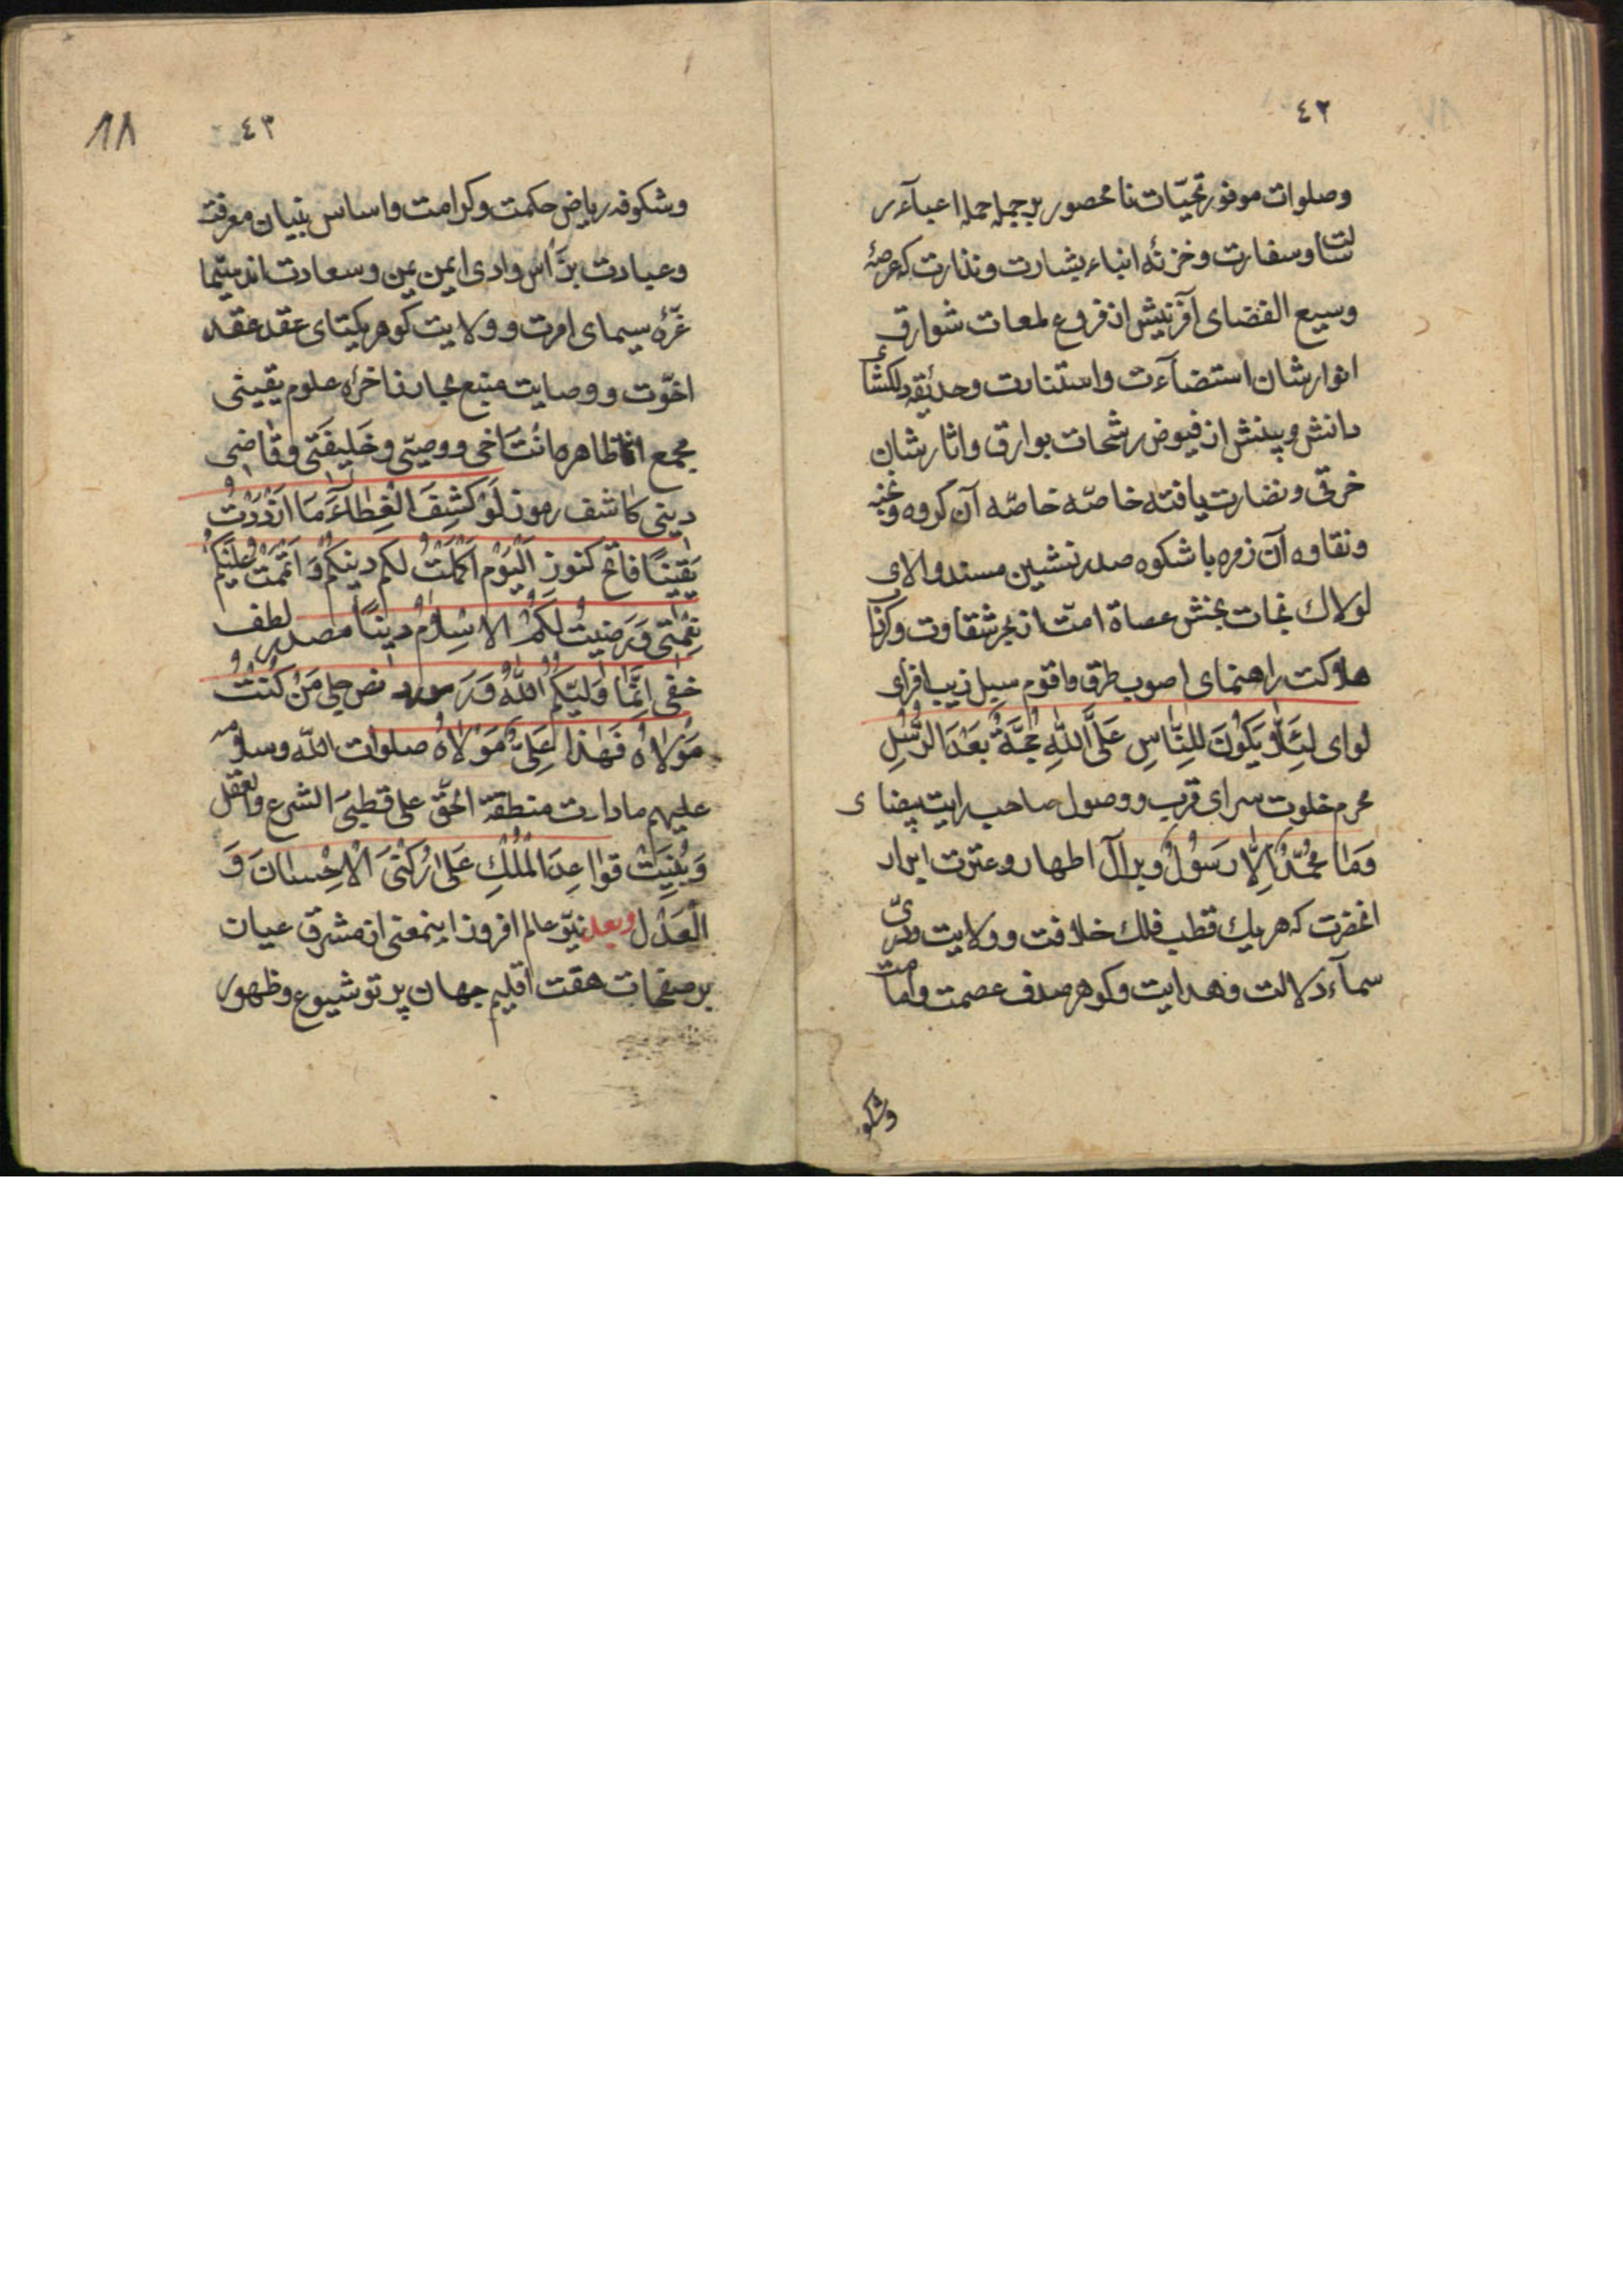 ٤٢
وصلوات موفور تحیّات نامحصور بر جمله حمله اعبآء ر
سالت وسفارت وخزنهٔ انباء بشارت ونذارت که عرصهٔ
وسیع الفضای آفرینش از فروغ لمعات شوارق
انوارشان استضآءت واستنارت وحدیقهٔ دلکشأ
دانش وبینش از فیوض رشحات بوارق واثارشان
خرقی ونضارت یافته خاصّه خاصّه آن کروه ونخبه
ونقاوه آن زمره باشکوه صدر نشین مسند والای
لولاك نجات بخش عصاة امّت از بحر شقاوت وکرنا
هلاکت راهنمای اصوب طرق واقوم سبیل زیب افزای
لوای لِئَلّاٰ یَکُونَ لِلنّٰاسِ عَلَی اللّٰهِ حُجَّةٌ بَعْدَ الرُّسُلِ
محرم خلوت سرای قرب ووصول صاحب رایت بیضای
وَمٰا مُحَمَّدٌ اِلّٰا رَسُوُلٌ وبر آل اطهار وعترت ابرار
انحضرت که هریك قطب فلك خلافت وولایت ودرّی
سمآء دلالت وهدایت وکوهر صدف عصمت وامامت
وشکو
٤٣
١٨
وشکوفه ریاض حکمت وکرامت واساس بنیان معرفت
وعبادت نبراس وادی ایمن یمن وسعادت اند سیّما
غرّهٔ سیمای امرت وولایت کوهر یکتای عقد عقد
اخوّت ووصایت منبع بحار زاخرهٔ علوم یقینی
مجمع اقطاهره اَنْتَ اَخی ووصیّی وخَلیفَتی وقٰاضی
دینی کاشف رموز لَوْ کُشِفَ الْغِطٰآءُ مَا ازْدَدْتُ
یَقینًا فاتح کنوز اَلْیَوْمَ اَکْمَلْتُ لکم دینکُمْ وَاَتْمَمْتُ عَلَیْکُمْ
نِعْمَتی وَرَضیتُ لَکُمُ الاِسْلٰامَ دینًا مصدر لطف
خفی اِنَّمٰا وَلیّکُمُ اللّٰهُ وَرَسوله مورد نص جلی مَنْ کُنْتُ
مَوْلاٰهُ فَهٰذا عَلِیٌّ مَوْلاٰهُ صلوات اللّٰه وسلامه
علیهم مادارت منطقة الحقّ علی قطبیَ الشرع والعقل
وَبُنِیَتْ قواعِدَ الْمُلْكِ عَلیٰ رُکْنَیَ الْاِحْسٰانَ وَ
الْعَدْلِ وبعد نیّر عالم افروز اینمعنی از مشرق عیان
بر صفحات هفت اقلیم جهان پرتو شیوع وظهور